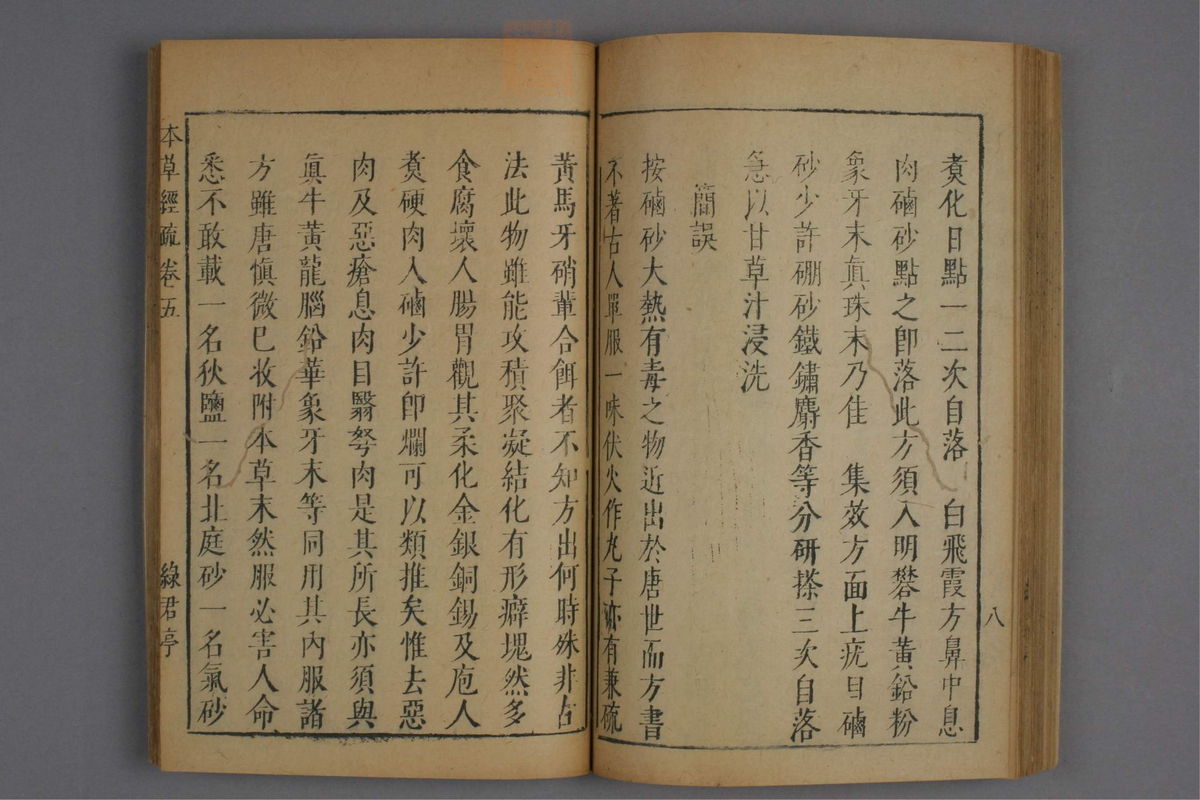 煑化日點一二次自落　白飛霞方鼻中息
肉磠砂點之卽落此方須入明礬牛黃鉛粉
象牙末眞珠末乃佳　集效方面上疣目磠
砂少許硼砂鐵鏽麝香等分研搽三次自落
急以甘草汁浸洗
簡誤
按磠砂大熱有毒之物近出於唐世而方書
不著古人單服一味伏火作丸子亦有兼硫
黃馬牙硝輩合餌者不知方出何時殊非古
法此物雖能攻積聚凝結化有形癖塊然多
食腐壞人腸胃觀其柔化金銀銅錫及庖人
煑硬肉入磠少許卽爛可以類推矣惟去惡
肉及惡瘡息肉目翳弩肉是其所長亦須與
眞牛黃龍腦鉛華象牙末等同用其內服諸
方雖唐愼微巳收附本草末然服必害人命
悉不敢載一名狄鹽一名北庭砂一名氣砂
本草經疏卷五
綠君亭
八